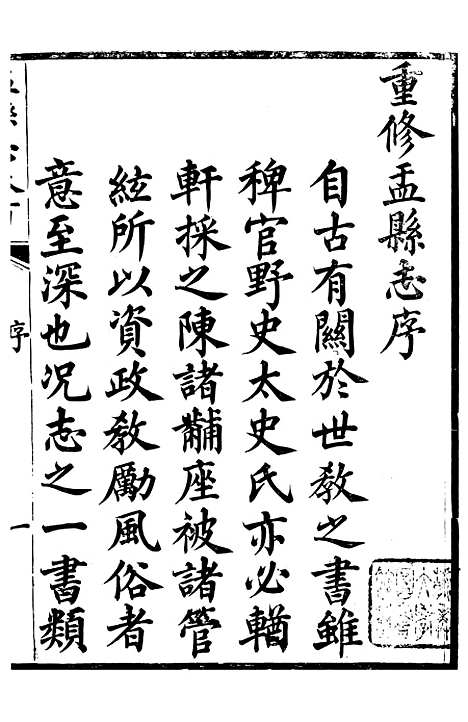 重修孟縣志序
自古有關於世教之書雖
稗官野史太史氏亦必輶
軒採之陳諸黼座被諸管
絃所以資政教勵風俗者
意至深也况志之一書類
序
一